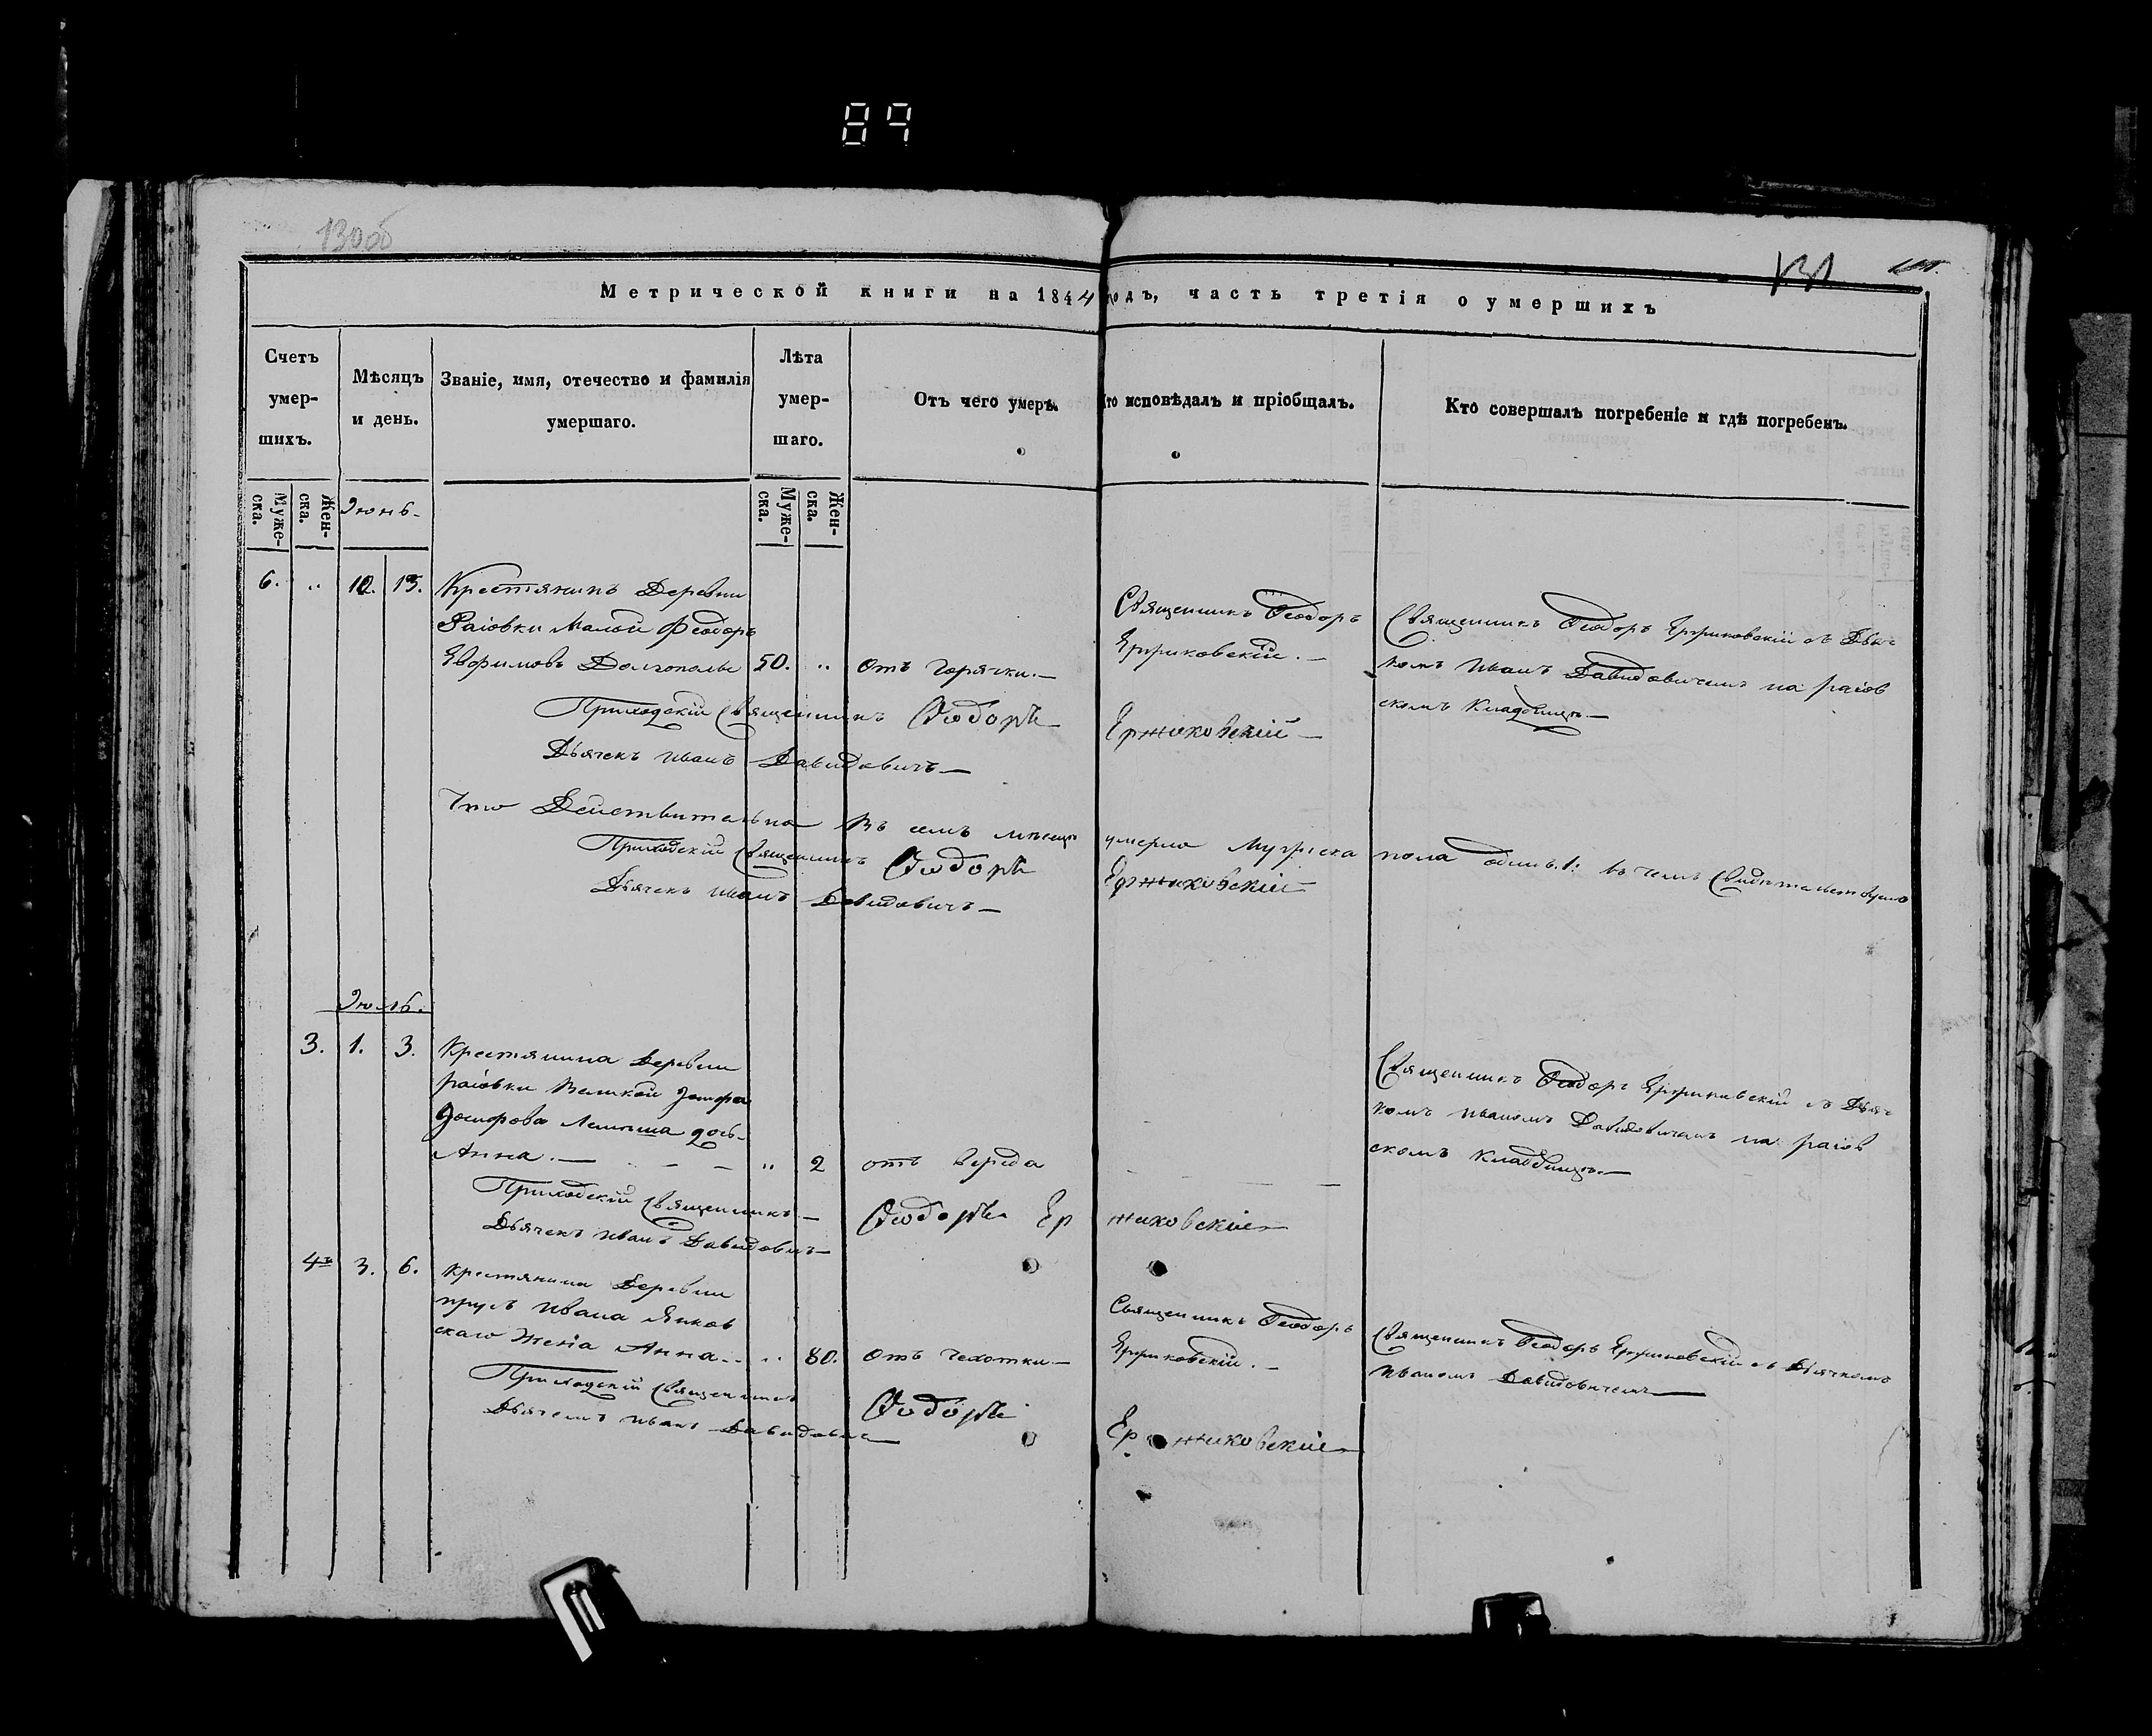 89
130об
131
Метрической книги на 1844 годъ, часть третія о умершихъ
Счетъ умер- шихъ.
Мѣсяцъ и день.
Званіе, имя, отечество и фамилія умершаго.
Лѣта умер- шаго.
Отъ чего умеръ.
Кто исповѣдалъ и пріобщалъ.
Кто совершалъ погребеніе и гдѣ погребенъ.
Муже- ска.
Жен- ска.
Іюнь.
Муже- ска.
Жен- ска.
6. „ 12. 15. Крестянинъ Деревни
Раіовки Малой Феодоръ
Евфимовъ Долгополы 50. „ отъ горячки.—
Священникъ Феодоръ
Ержиковскій.—
Священникъ Феодоръ Ержиковскій съ Дья-
комъ Иванъ Давидовичемъ на раіов
скомъ Кладбищѣ.—
Приходскій Священникъ Феодоръ Ержиковскій—
Дьячекъ Иванъ Давидовичъ—
Что Действительно въ семъ мѣсяцѣ умерло Мужеска пола одинъ. 1: въ чемъ Свидѣтельствуемъ
Приходскій Священникъ Феодоръ Ержиковскій
Дьячекъ Иванъ Давидовичъ—
Іюль.
3. 1. 3. Крестянина Деревни
раіовки Великой
дочь
Анна.— „ 2 отъ вереда
Священникъ Феодоръ Ержиковскій съ Дьяч-
комъ Иваномъ Давидовичемъ на раіов
скомъ Кладбищѣ.—
Приходскій Священникъ— Феодоръ Ержиковскій
Дьячекъ Иванъ Давидовичъ—
4. 3. 6. Крестянина Деревни
Ивана Янков
скаго Жена Анна.. „ 80. отъ чехотки—
Священникъ Феодоръ
Ержиковскій.—
Священникъ Феодоръ Ержиковскій съ Дьячкомъ
Иваномъ Давидовичемъ—
Приходскій Священникъ Феодоръ Ержиковскій
Дьячекъ Иванъ Давидовичъ